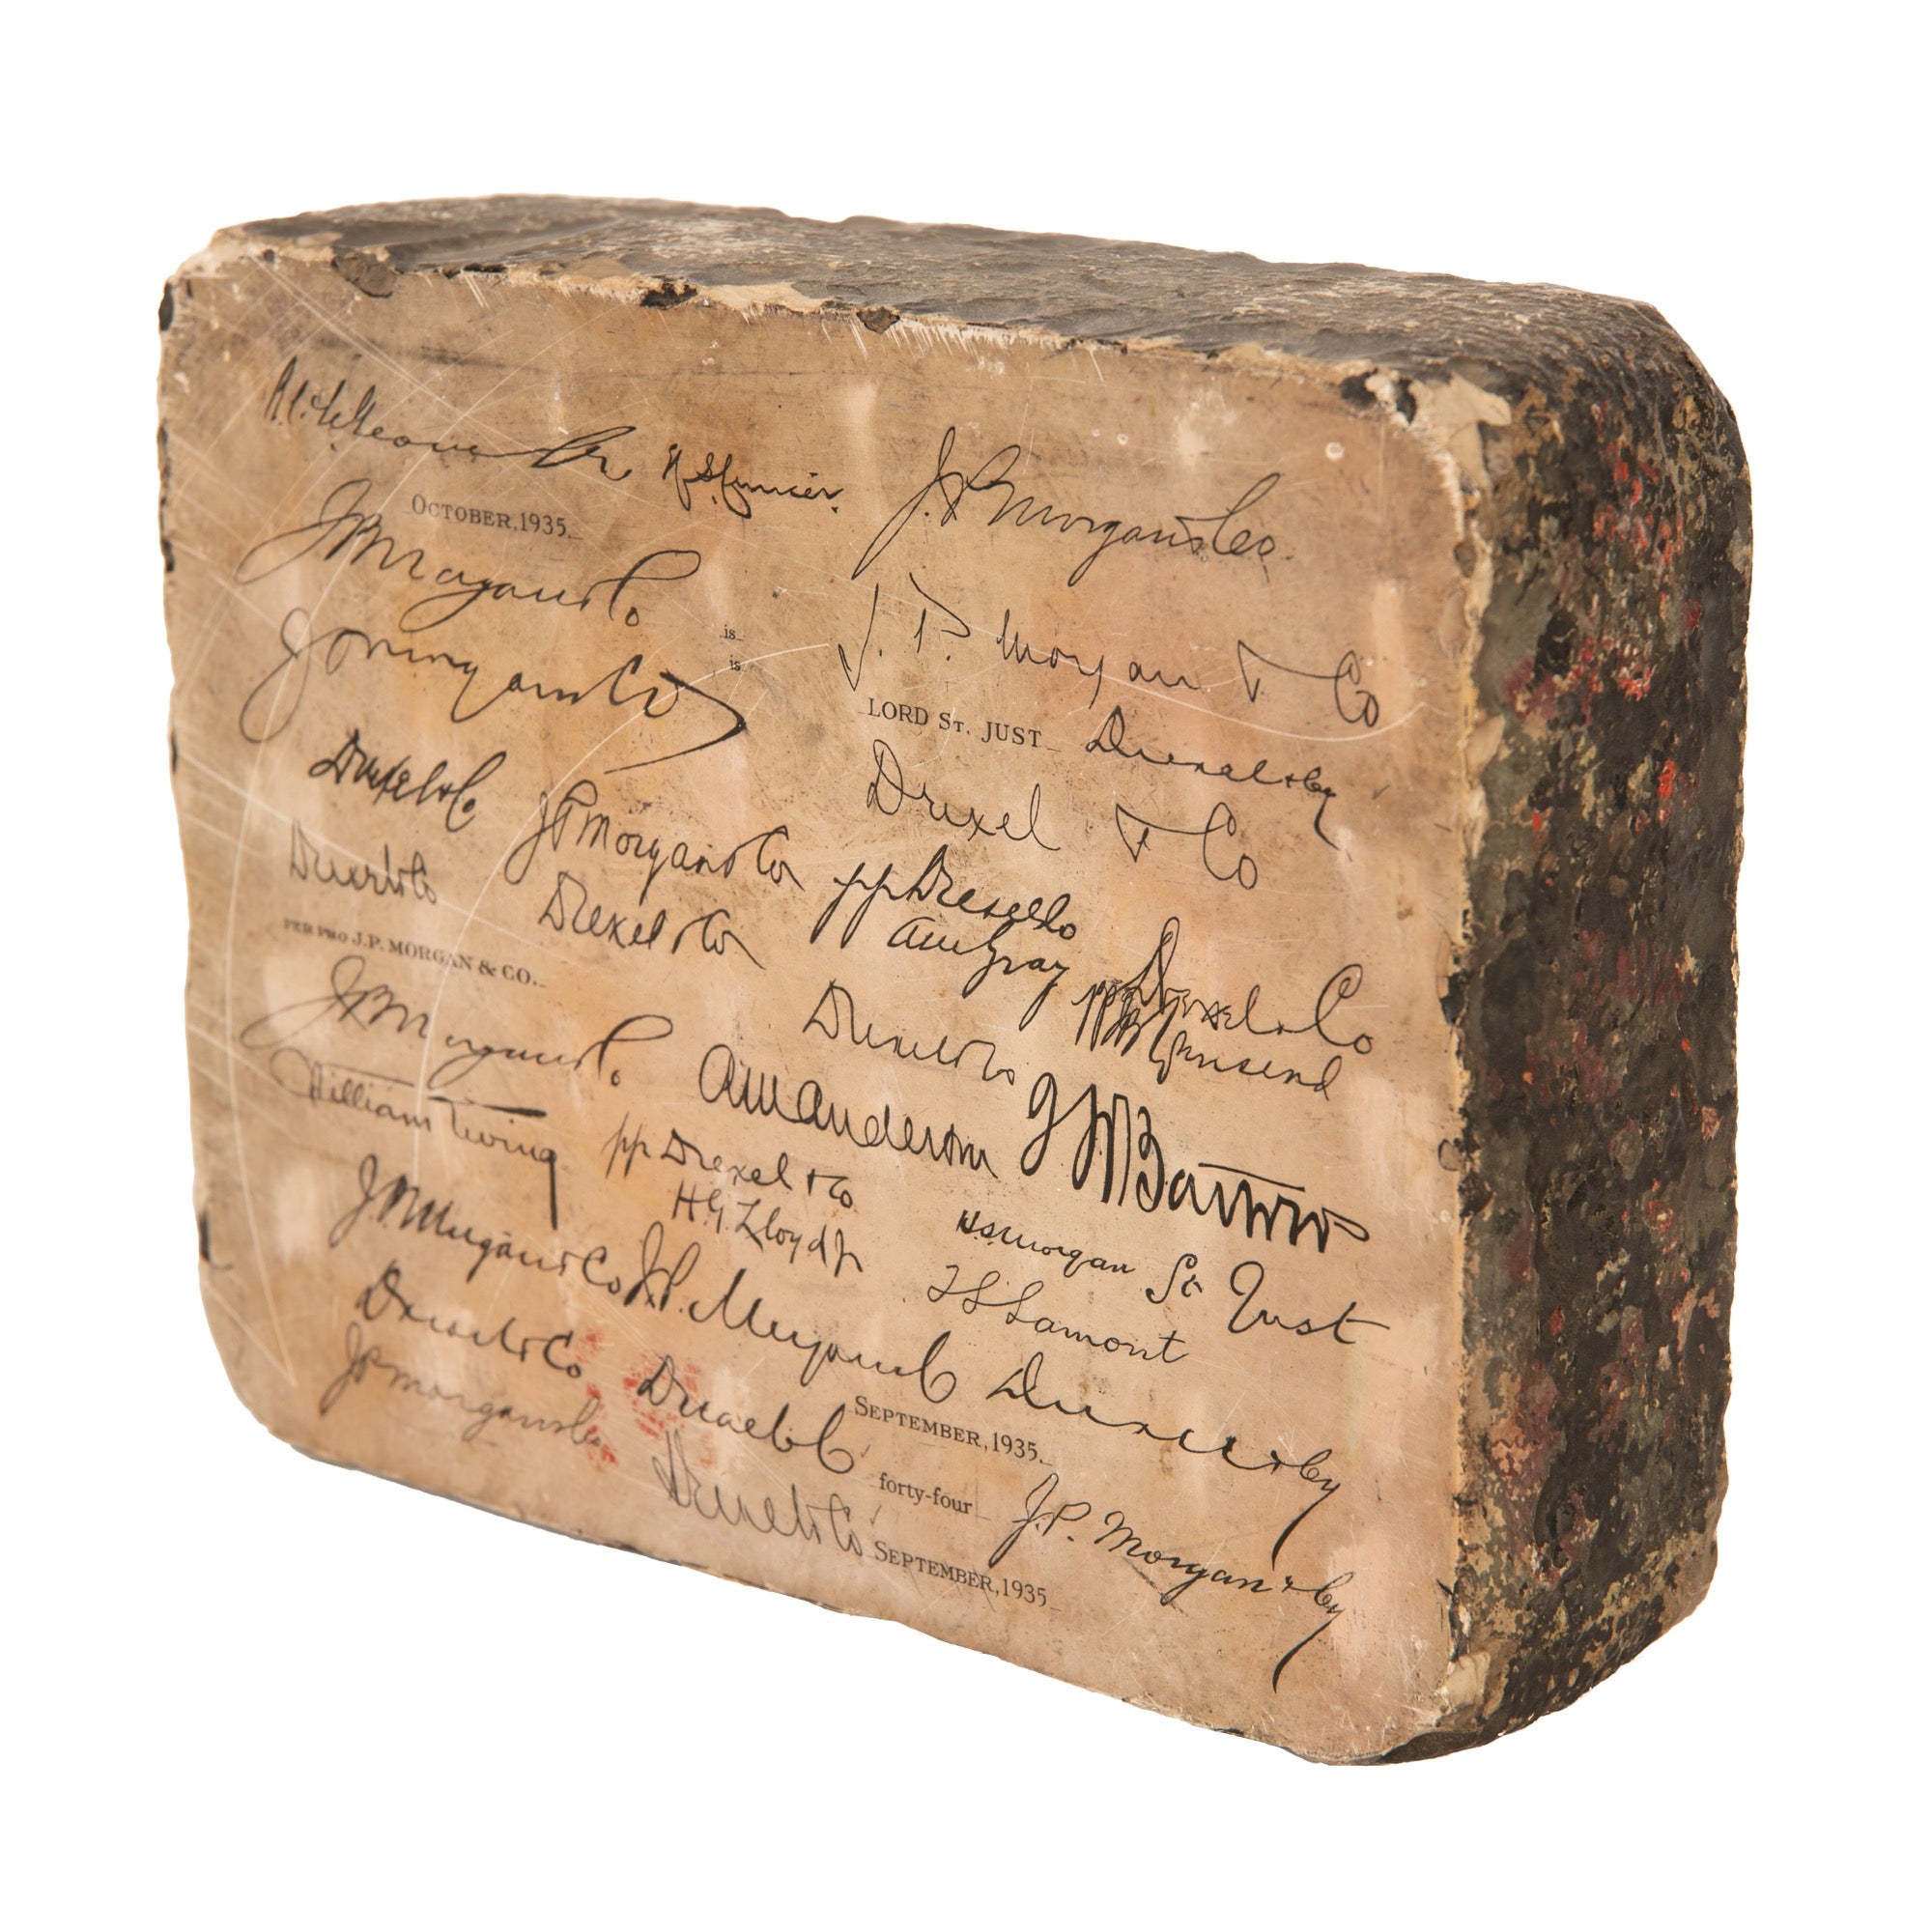 J.P. Morgan & Co.
OCTOBER, 1935.
J.P. Morgan & Co
is
J.P. Morgan & Co
is
J. P. Morgan & Co
LORD ST. JUST
Drexel & Co
Drexel & Co
Drexel & Co
J P Morgan & Co
pp Drexel & Co
Drexel & Co
Drexel & Co
Gray
Drexel & Co
PER PRO J.P. MORGAN & CO.
pp
Townsend
J.P. Morgan & Co
Drexel & Co
William Ewing
Anderson
Bartow
pp Drexel & Co
H.G. Lloyd Jr
J.P. Morgan & Co
H S Morgan
St Just
J.P. Morgan & Co
T S Lamont
Drexel & Co
Drexel & Co
Drexel & Co
J P Morgan & Co
SEPTEMBER, 1935.
forty-four
J.P. Morgan & Co
Drexel & Co
SEPTEMBER, 1935